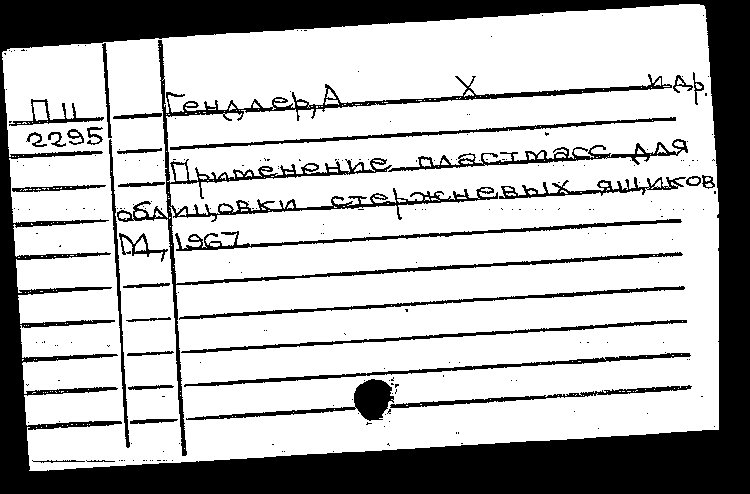 П 11 Гендлер, А Х и др.
2295
Применение пластмасс для
облицовки стержневых ящиков
М, 1967